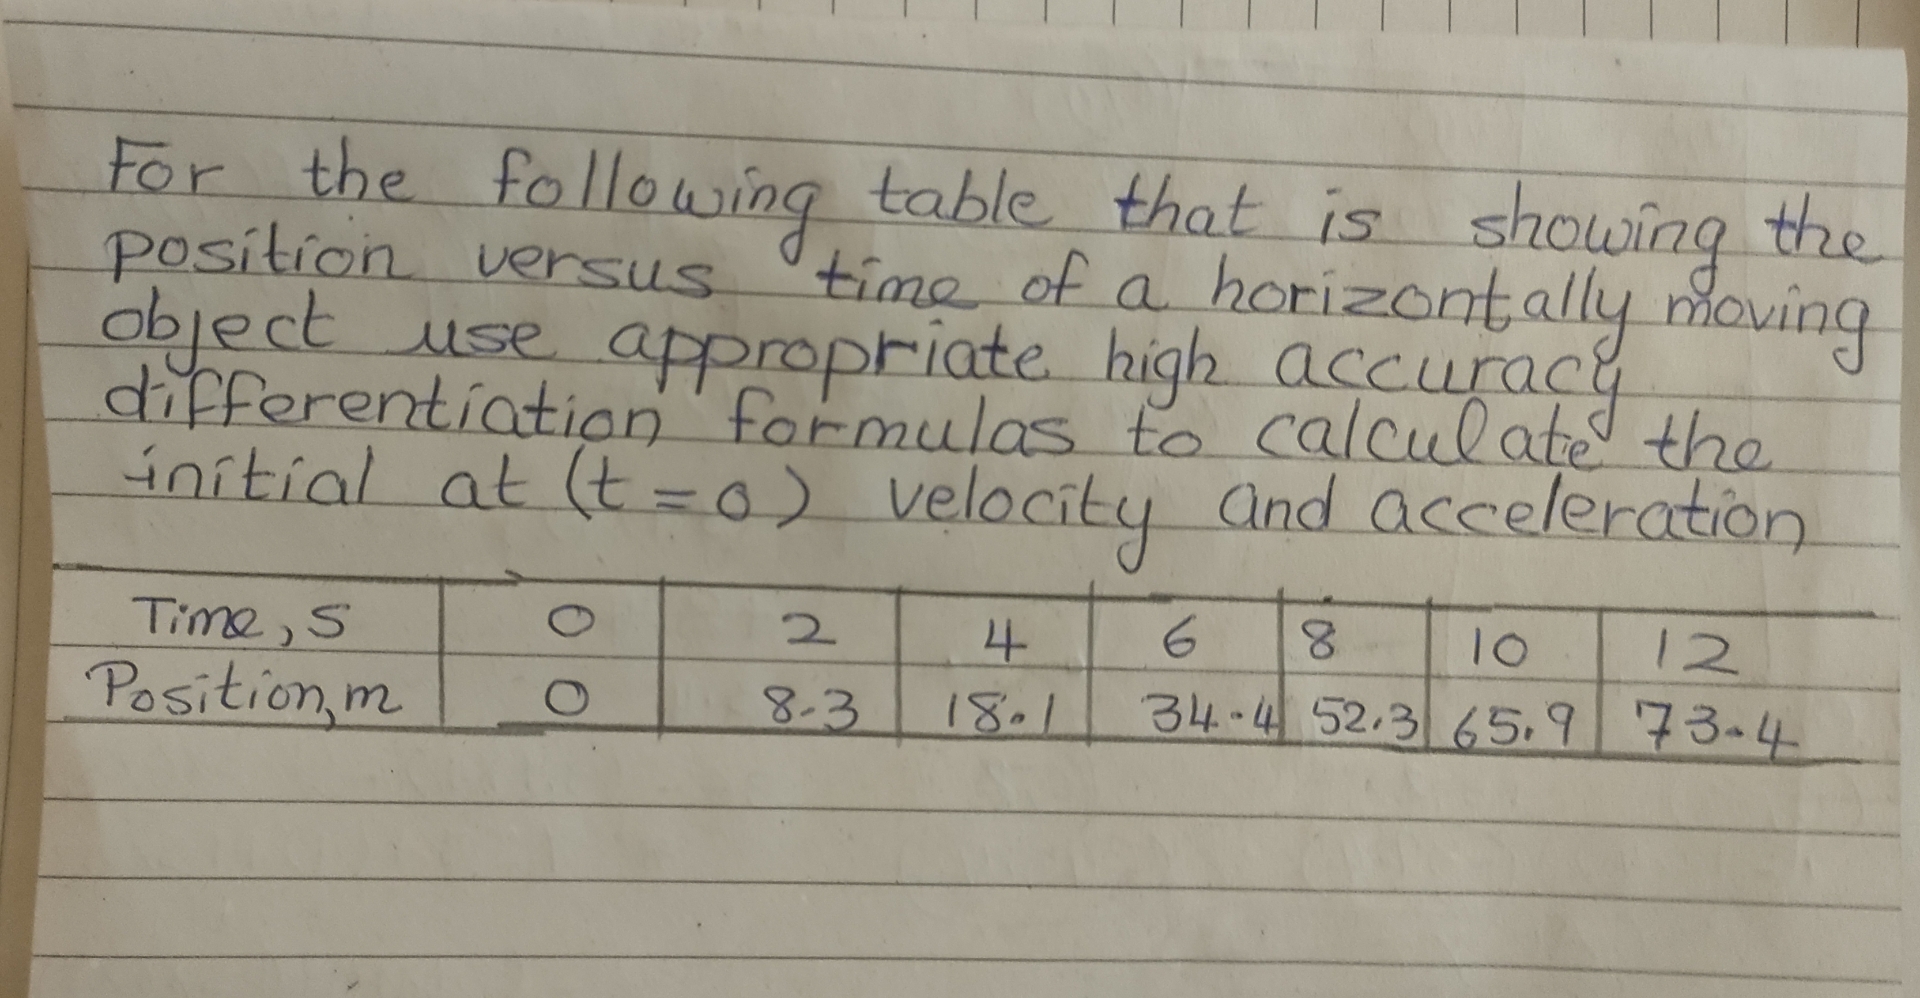 For the following table that is showing the
position versus time of a horizontally moving
object use appropriate high accuracy
differentiation formulas to calculate the
initial at (t=0) velocity and acceleration
Time, s 0 2 4 6 8 10 12
Position, m 0 8.3 18.1 34.4 52.3 65.9 73.4